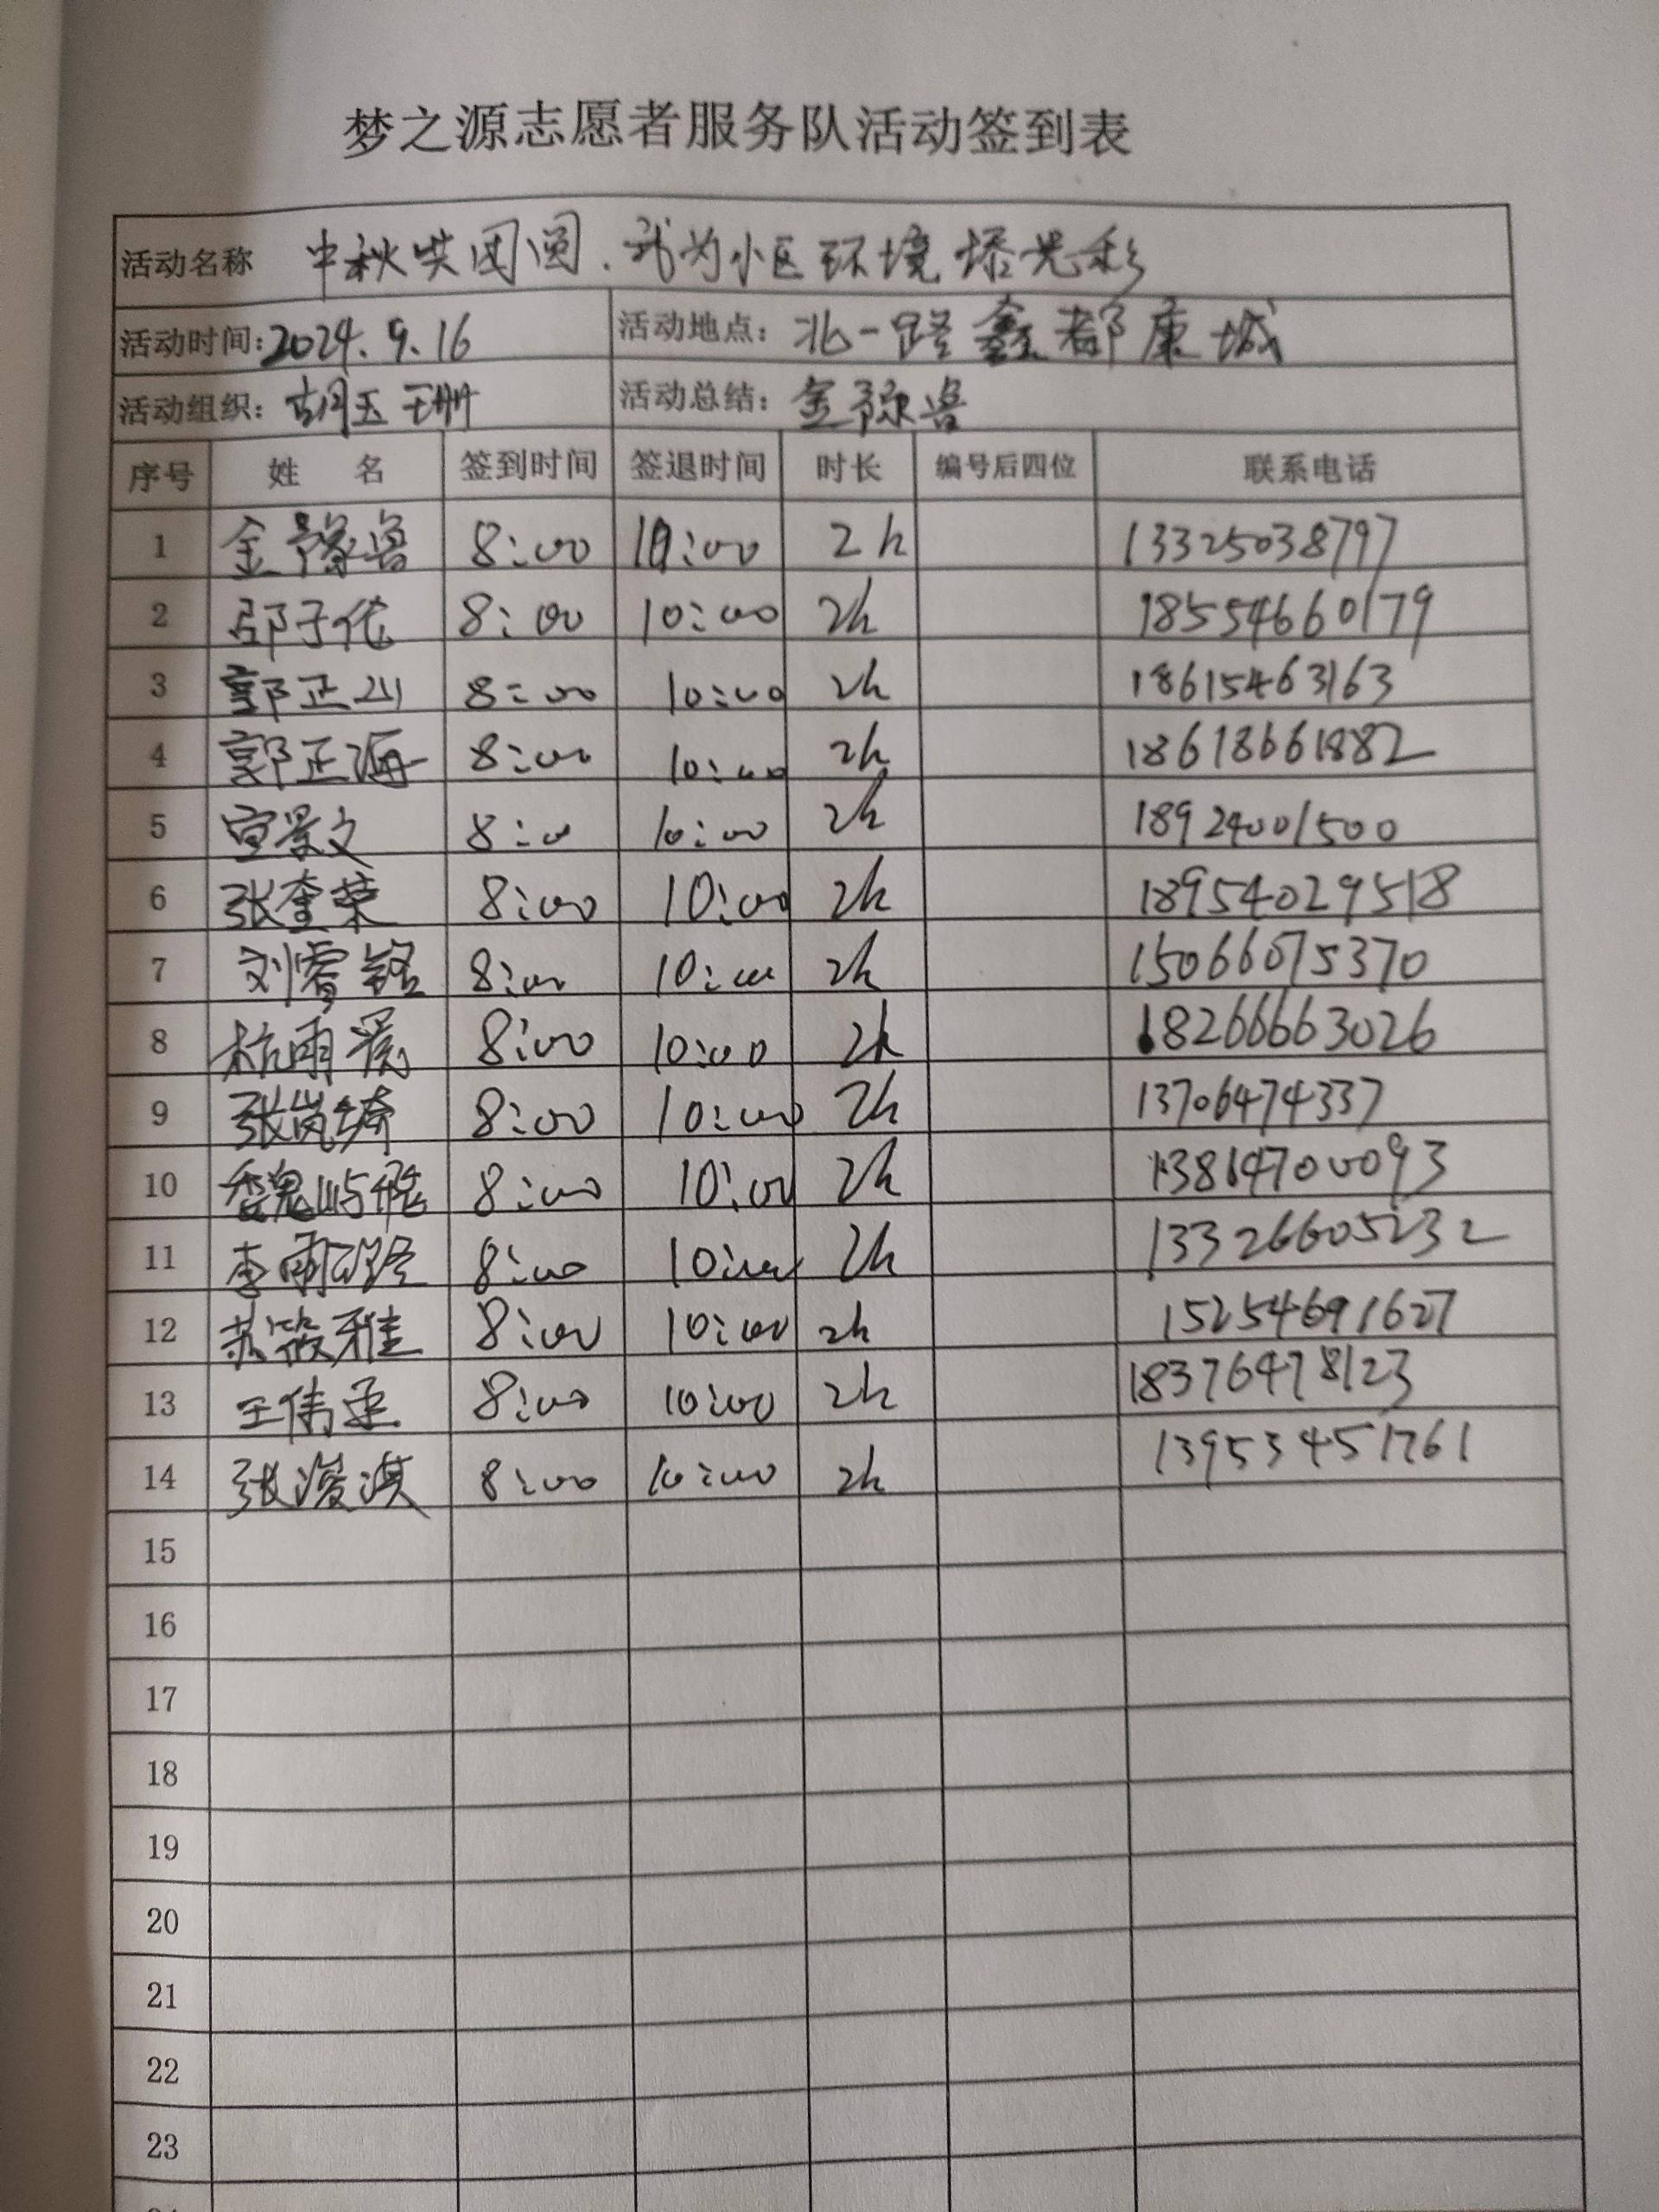 梦之源志愿者服务队活动签到表
活动名称 中秋共团圆.我为小区环境添光彩
活动时间:2024.9.16 活动地点: 北一路鑫都康城
活动组织: 胡玉珊 活动总结: 金豫鲁
序号 姓 名 签到时间 签退时间 时长 编号后四位 联系电话
1 金豫鲁 8:00 10:00 2h 13325038797
2 邵子依 8:00 10:00 2h 18554660179
3 郭正山 8:00 10:00 2h 18615463163
4 郭正海 8:00 10:00 2h 18618661882
5 宣景文 8:00 10:00 2h 18924001500
6 张奎荣 8:00 10:00 2h 18954029518
7 刘睿铭 8:00 10:00 2h 15066075370
8 杭雨 8:00 10:00 2h 18266663026
9 张岚琦 8:00 10:00 2h 13706474337
10 魏屿 8:00 10:00 2h 13814700093
11 李雨璐 8:00 10:00 2h 13326605232
12 苏筱雅 8:00 10:00 2h 15254691627
13 王伟丞 8:00 10:00 2h 18376478123
14 张浚淇 8:00 10:00 2h 13953451761
15
16
17
18
19
20
21
22
23